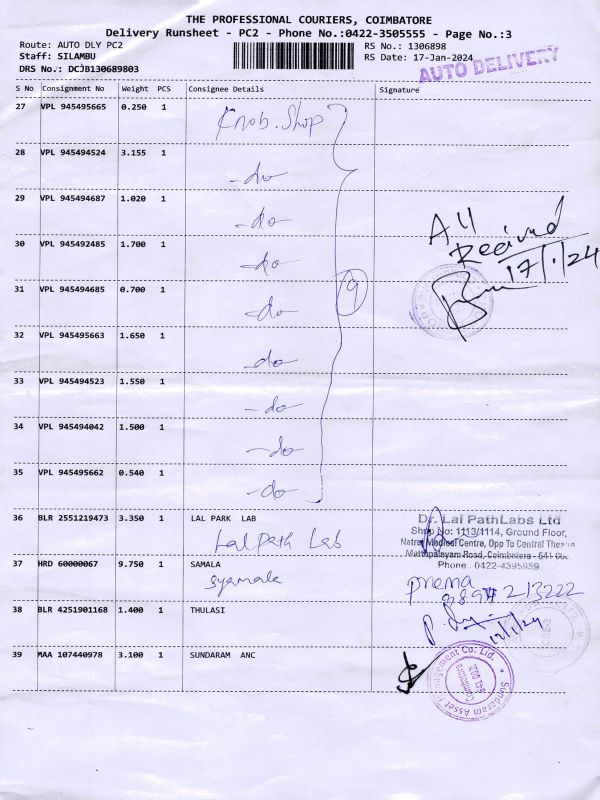 THE PROFESSIONAL COURIERS, COIMBATORE
Delivery Runsheet - PC2 - Phone No.:0422-3505555 - Page No.:3
Route: AUTO DLY PC2 RS No.: 1306898
Staff: SILAMBU RS Date: 17-Jan-2024
DRS No.: DCJB130689803 AUTO DELIVERY
S No Consignment No Weight PCS Consignee Details Signature
27 VPL 945495665 0.250 1 Knob.Shop
28 VPL 945494524 3.155 1
-do
29 VPL 945494687 1.020 1
-do All
30 VPL 945492485 1.700 1 Received
-do 17/1/24
31 VPL 945494685 0.700 1 9
-do
32 VPL 945495663 1.650 1
-do
33 VPL 945494523 1.550 1
-do
34 VPL 945494042 1.500 1
-do
35 VPL 945495662 0.540 1
-do
36 BLR 2551219473 3.350 1 LAL PARK LAB Dr. Lal PathLabs Ltd
Shop No: 1113/1114, Ground Floor,
Lal Path Lab Medical Centre, Opp To Central
Mettupalayam Road, Coimbatore - 641
37 HRD 60000067 9.750 1 SAMALA Phone : 0422-4395959
syamala prema
213222
38 BLR 4251901168 1.400 1 THULASI
39 MAA 107440978 3.100 1 SUNDARAM ANC
Sundaram Asset Management Co. Ltd.
Coimbatore
641 002.